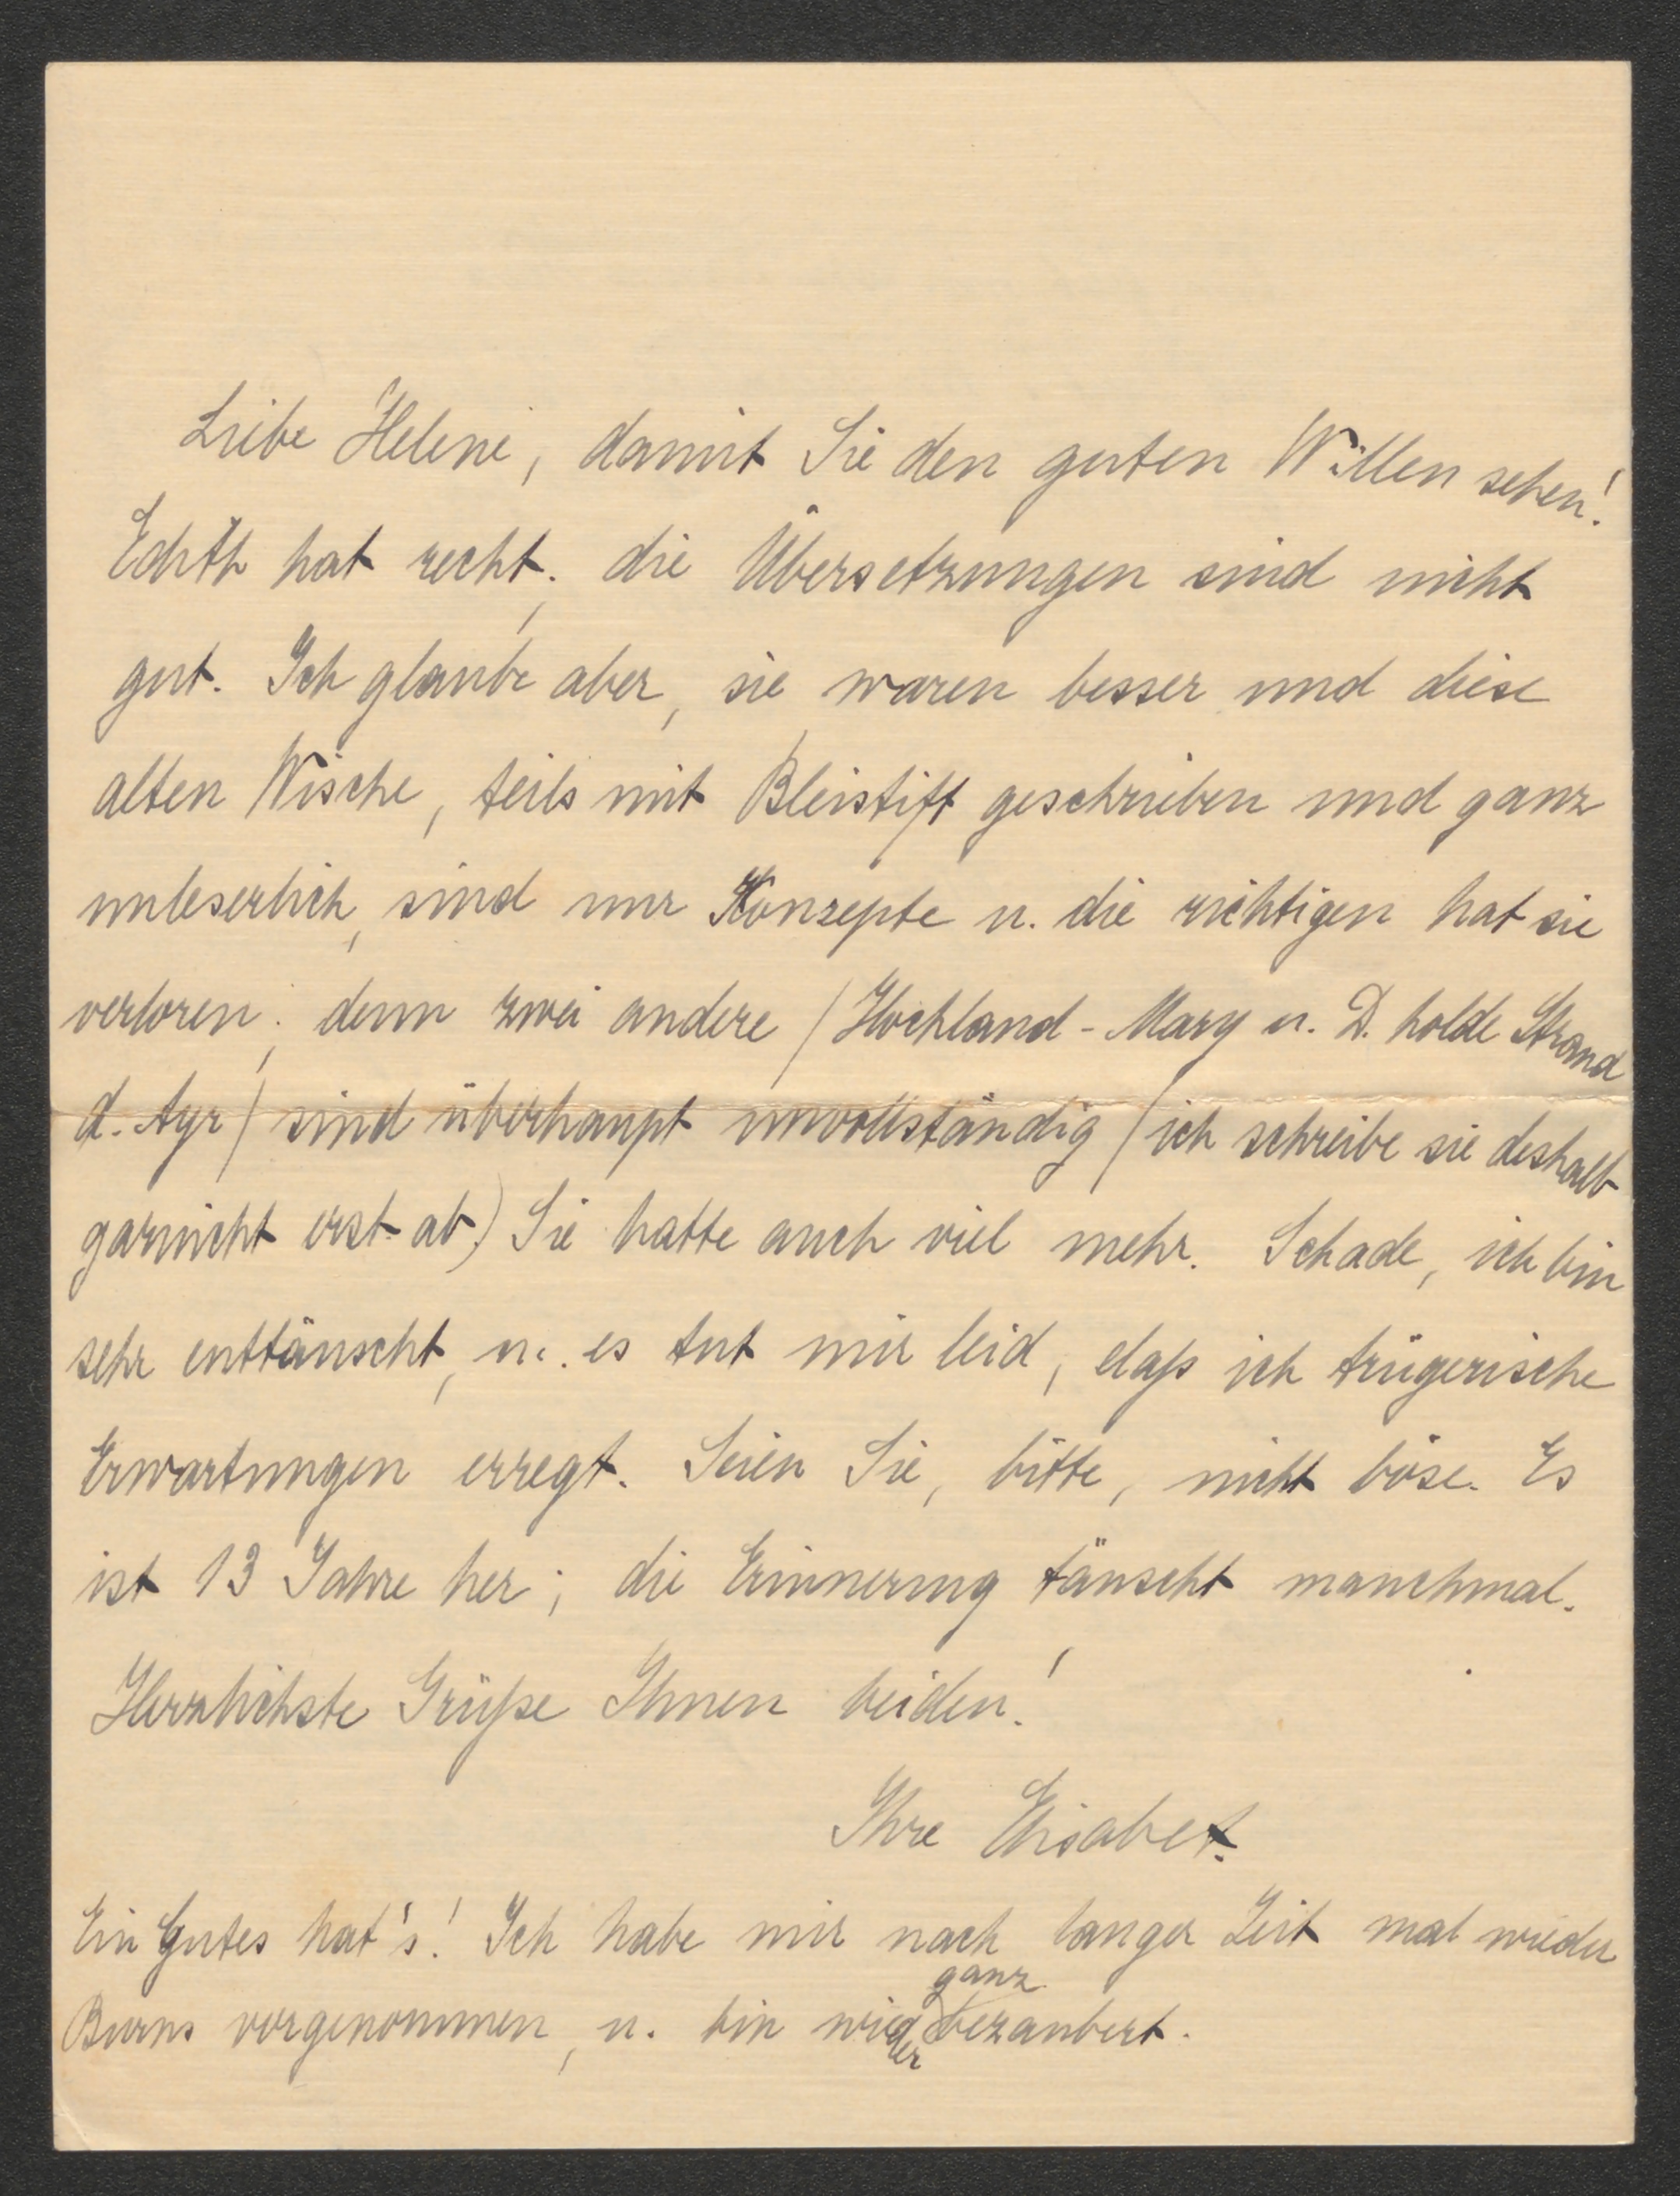 Liebe Helene, damit Sie den guten Willen sehen!
Edith hat recht; die Übersetzungen sind nicht
gut. Ich glaube aber, sie waren besser und diese
alten Wische, teils mit Bleistift geschrieben und ganz
unleserlich, sind nur Konzepte u. die richtigen hat sie
verloren; denn zwei andere (Hochland-Mary u. D. holde Strand
d. Ayr) sind überhaupt unvollständig (ich schreibe sie deshalb
garnicht erst ab.) Sie hatte auch viel mehr. Schade, ich bin
sehr enttäuscht, u. es tut mir leid, daß ich trügerische
Erwartungen erregt. Seien Sie, bitte, nicht böse. Es
ist 13 Jahre her; die Erinnerung täuscht manchmal.
Herzlichste Grüße Ihnen beiden!
Ihre Elisabet.
Ein Gutes hat's! Ich habe mir nach langer Zeit mal wieder
Burns vorgenommen, u. bin wieder ganz bezaubert.